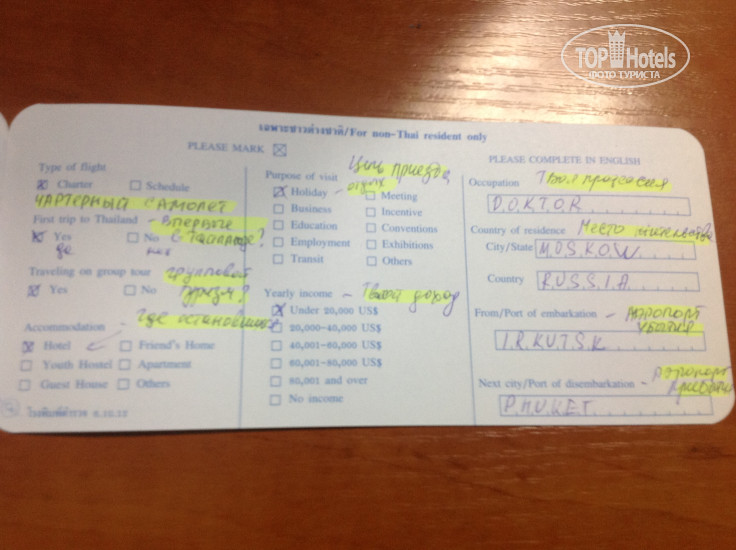 TOP Hotels
ФОТО ТУРИСТА
เฉพาะชาวต่างชาติ/For non-Thai resident only
PLEASE MARK ☒
Type of flight
☒ Charter ☐ Schedule
ЧАРТЕРНЫЙ САМОЛЕТ
First trip to Thailand - Впервые
☒ Yes ☐ No в Таиланде?
да нет
Traveling on group tour групповой
☒ Yes ☐ No туризм?
Accommodation - Где остановишься
☒ Hotel ☐ Friend's Home
☐ Youth Hostel ☐ Apartment
☐ Guest House ☐ Others
โรงพิมพ์ตำรวจ 6.10.12
Purpose of visit Цель приезда
☒ Holiday - отдых ☐ Meeting
☐ Business ☐ Incentive
☐ Education ☐ Conventions
☐ Employment ☐ Exhibitions
☐ Transit ☐ Others
Yearly income - Твой доход
☒ Under 20,000 US$
☐ 20,000-40,000 US$
☐ 40,001-60,000 US$
☐ 60,001-80,000 US$
☐ 80,001 and over
☐ No income
PLEASE COMPLETE IN ENGLISH
Occupation Твоя профессия
DOKTOR
Country of residence Место жительства
City/State MOSKOW
Country RUSSIA
From/Port of embarkation - АЭРОПОРТ
IRKUTSK
Next city/Port of disembarkation - Аэропорт
PHUKET